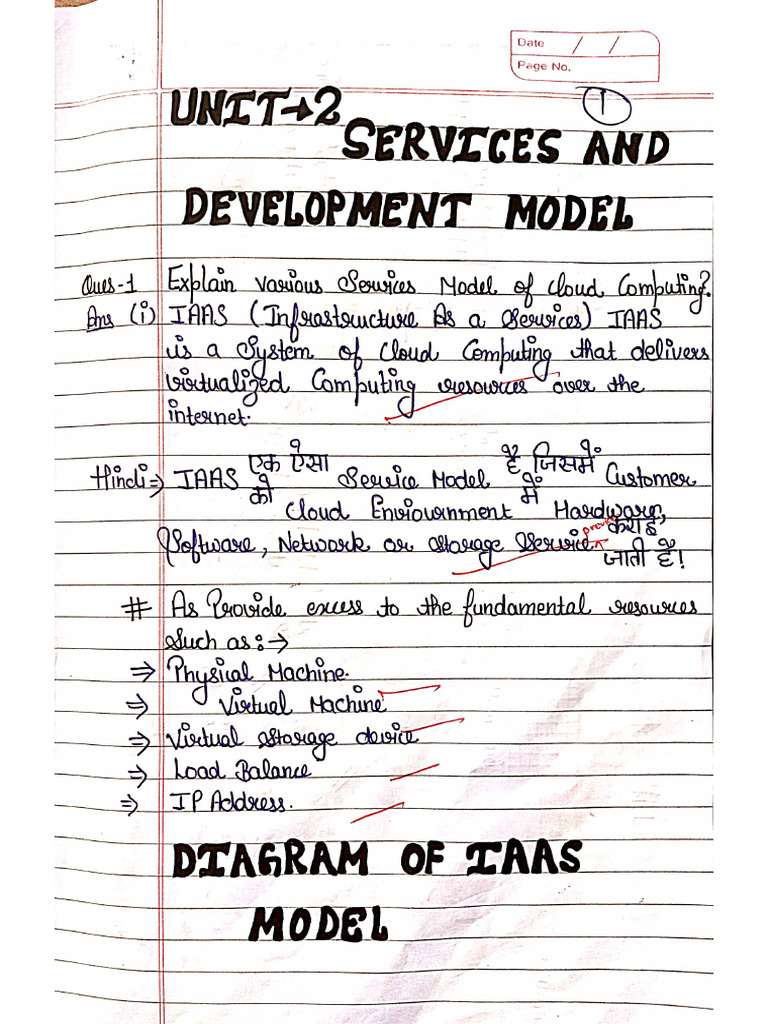 Date / /
Page No.
1
UNIT→2
SERVICES AND
DEVELOPMENT MODEL
Ques-1 Explain various Services Model of Cloud Computing?
Ans (i) IAAS (Infrastructure As a Services) IAAS
is a System of Cloud Computing that delivers
virtualized Computing resources over the
internet.
Hindi⇒ IAAS एक ऐसा Service Model है जिसमें Customer
को Cloud Enviournment में Hardware,
Software, Network or Storage Service provide कराई
जाती है!
# As Provide excess to the fundamental resources
Such as:→
⇒ Physical Machine.
⇒ Virtual Machine
⇒ Virtual Storage device
⇒ Load Balance
⇒ IP Address.
DIAGRAM OF IAAS
MODEL